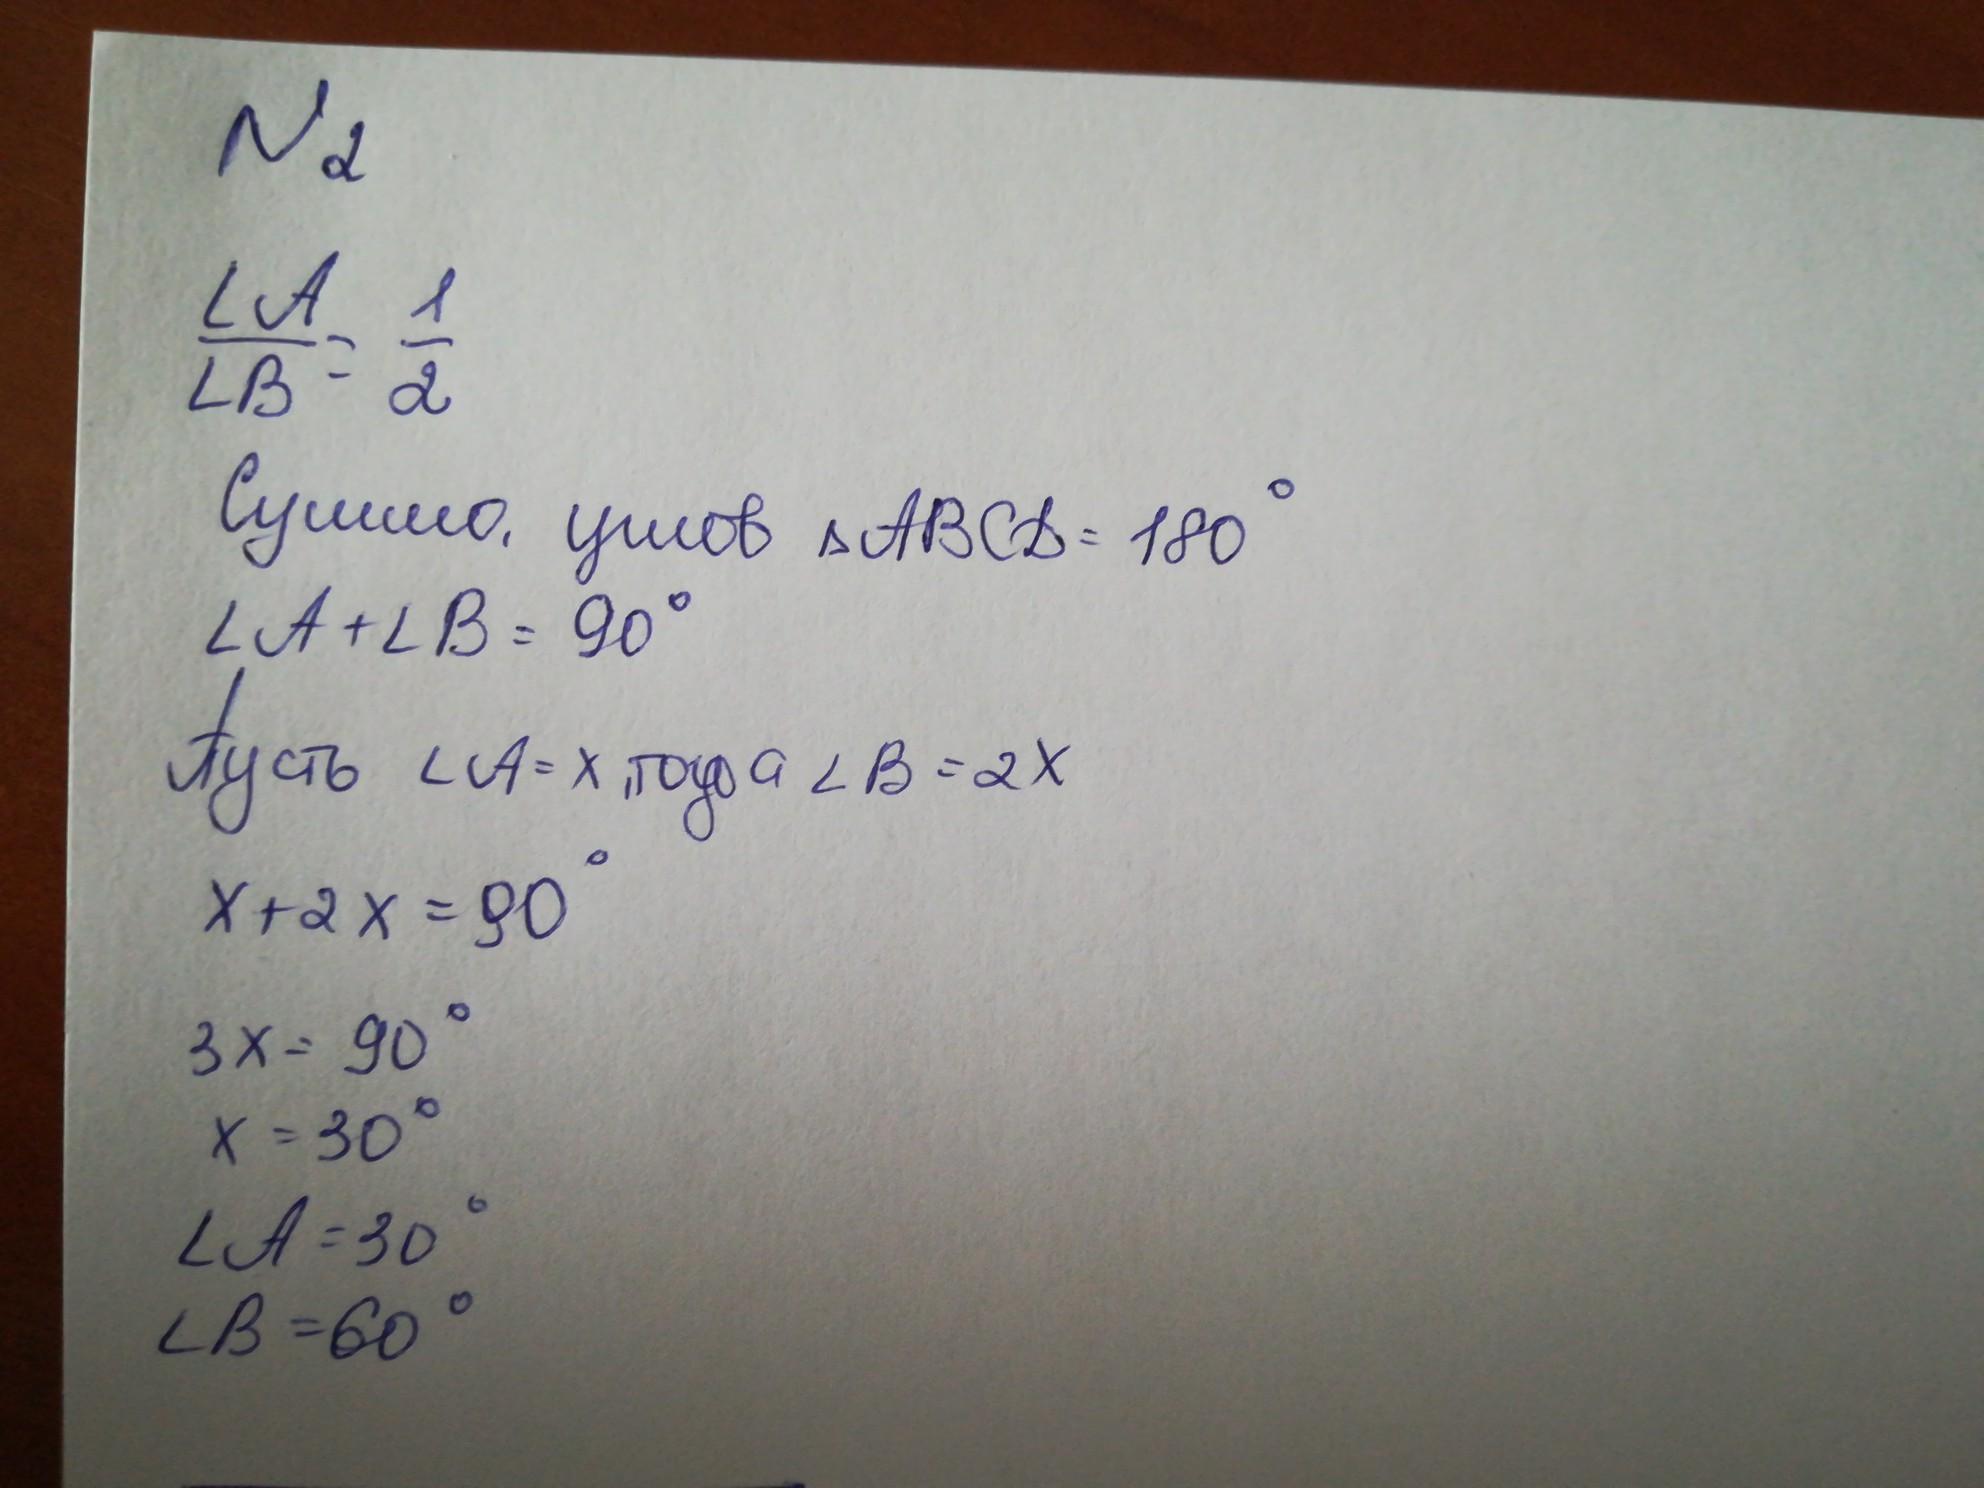 N2
∠A/∠B = 1/2
Сумма углов △ABCD = 180°
∠A + ∠B = 90°
Пусть ∠A = x, тогда ∠B = 2x
x + 2x = 90°
3x = 90°
x = 30°
∠A = 30°
∠B = 60°